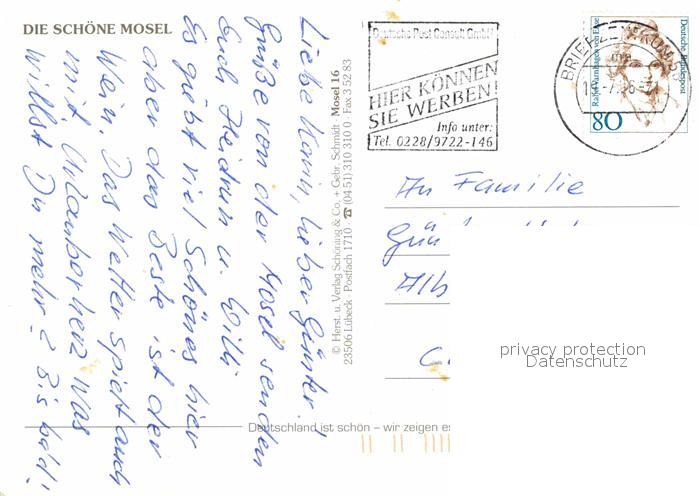 DIE SCHÖNE MOSEL
Liebe Karin, lieber Günter!
Grüße von der Mosel senden
Euch Heidrun u. Willi
Es giebt viel Schönes hier
aber das Beste ist der
Wein. Das Wetter spielt auch
mit, Urlauberherz was
willst Du mehr? Bis bald!
© Herst. u. Verlag Schöning & Co. + Gebr. Schmidt · Mosel 16
23506 Lübeck · Postfach 1710 · ☎ (04 51) 310 310 0 · Fax 3 52 83
Deutsche Post Consult GmbH
HIER KÖNNEN
SIE WERBEN!
Info unter:
Tel. 0228/9722-146
BRIEFZENTRUM
Deutsche Bundespost
Rahel Varnhagen von Ense
80
An Familie
Gün
Alb
privacy protection
Datenschutz
Deutschland ist schön – wir zeigen es